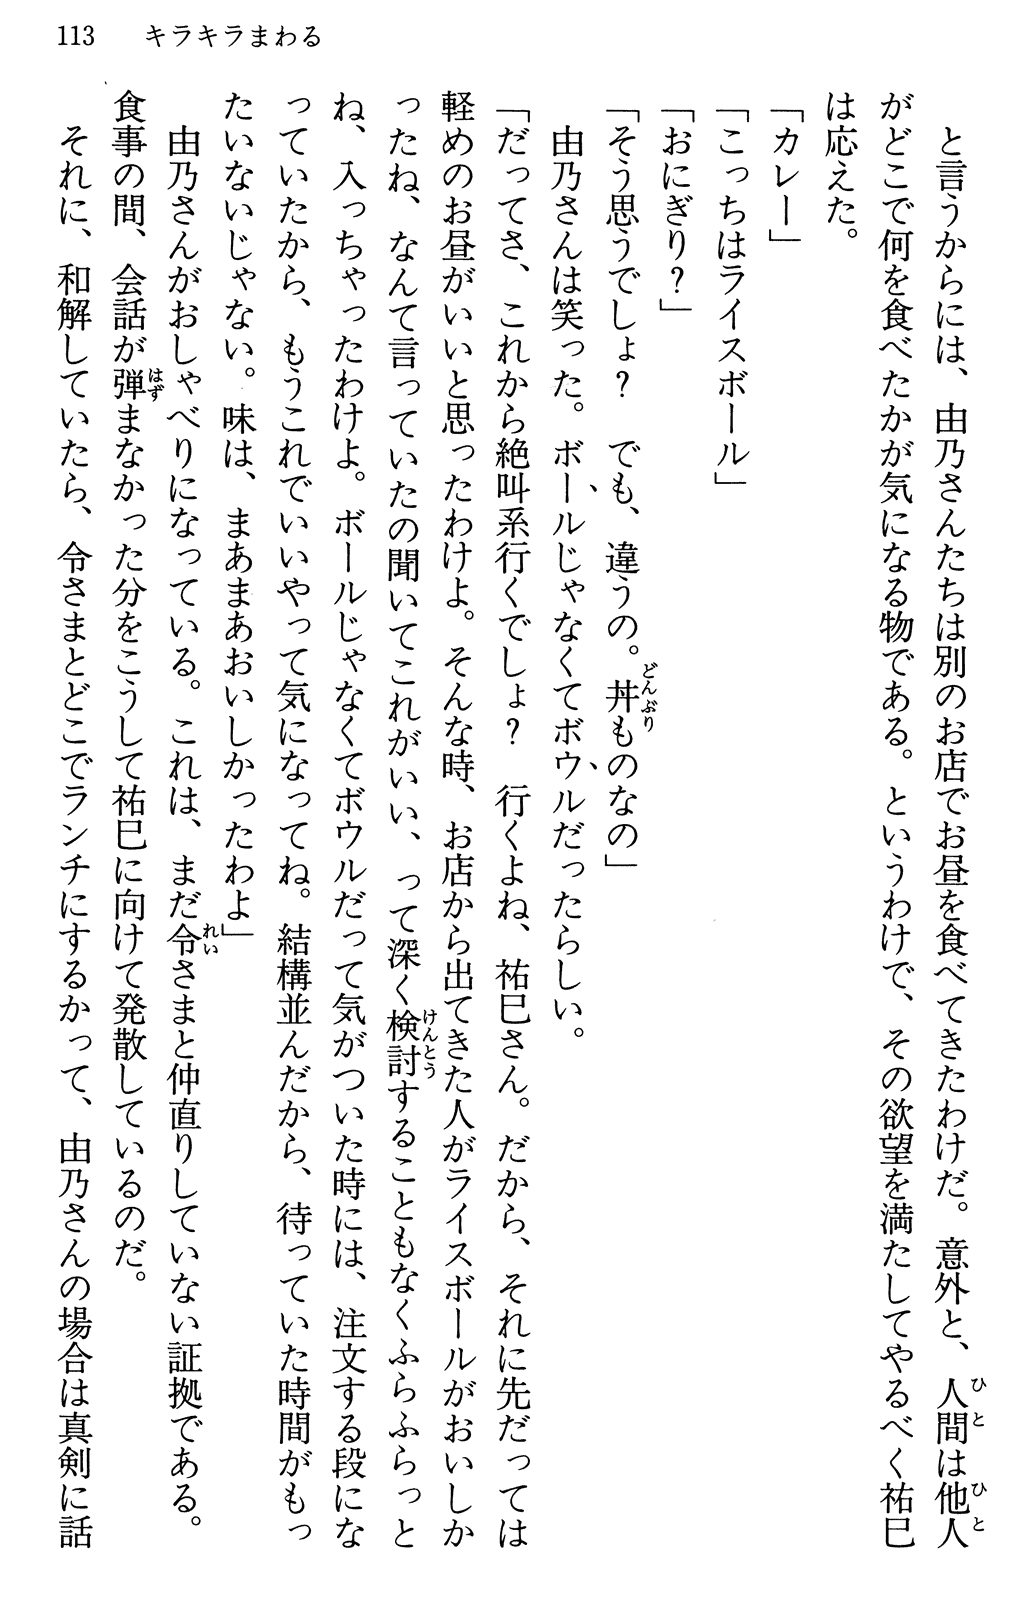 113　キラキラまわる
　と言うからには、由乃さんたちは別のお店でお昼を食べてきたわけだ。意外と、人間は他人
がどこで何を食べたかが気になる物である。というわけで、その欲望を満たしてやるべく祐巳
は応えた。
「カレー」
「こっちはライスボール」
「おにぎり？」
「そう思うでしょ？　でも、違うの。丼ものなの」
　由乃さんは笑った。ボールじゃなくてボウルだったらしい。
「だってさ、これから絶叫系行くでしょ？　行くよね、祐巳さん。だから、それに先だっては
軽めのお昼がいいと思ったわけよ。そんな時、お店から出てきた人がライスボールがおいしか
ったね、なんて言っていたの聞いてこれがいい、って深く検討することもなくふらふらっと
ね、入っちゃったわけよ。ボールじゃなくてボウルだって気がついた時には、注文する段にな
っていたから、もうこれでいいやって気になってね。結構並んだから、待っていた時間がもっ
たいないじゃない。味は、まあまあおいしかったわよ」
　由乃さんがおしゃべりになっている。これは、まだ令さまと仲直りしていない証拠である。
食事の間、会話が弾まなかった分をこうして祐巳に向けて発散しているのだ。
　それに、和解していたら、令さまとどこでランチにするかって、由乃さんの場合は真剣に話